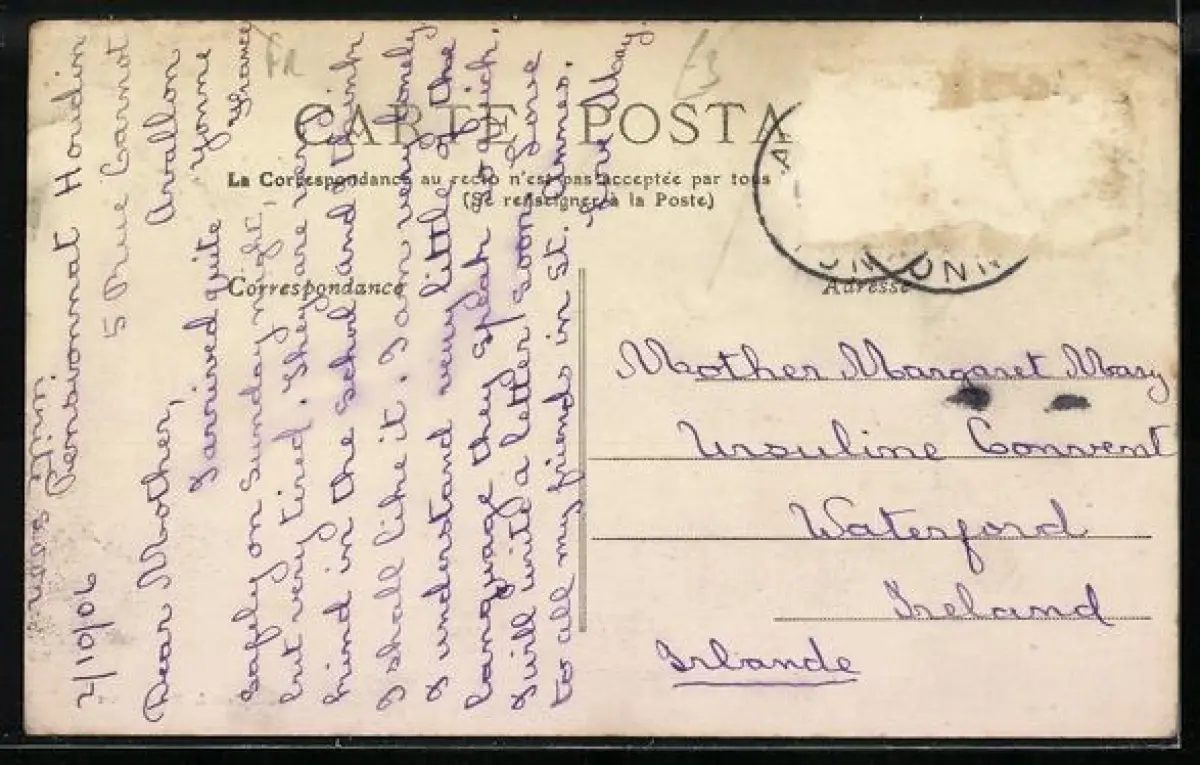 CARTE POSTA
La Correspondance au recto n'est pas acceptée par tous
(Se renseigner à la Poste)
Correspondance
Adresse
Pensionnat Houdin
5 Rue Carnot
Avallon
Yonne
France
2/10/06
Dear Mother,
I arrived quite
safely on Sunday night,
but very tired. They are very
kind in the school and I think
I shall like it. I am very lonely
I understand very little of the
language they speak so quick.
I will write a letter soon. Love
to all my friends in St. Annes.
Mary
Mother Margaret Mary
Ursuline Convent
Waterford
Ireland
Irlande